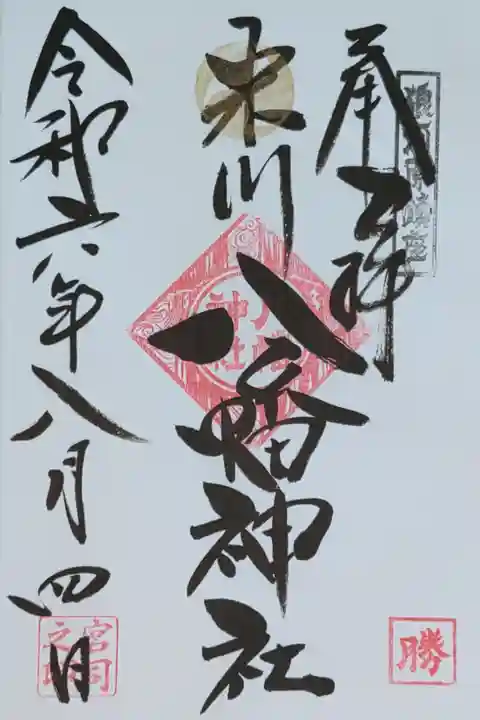 奉拝
東川八幡神社
八幡神社
令和六年八月四日
宮司之印
勝